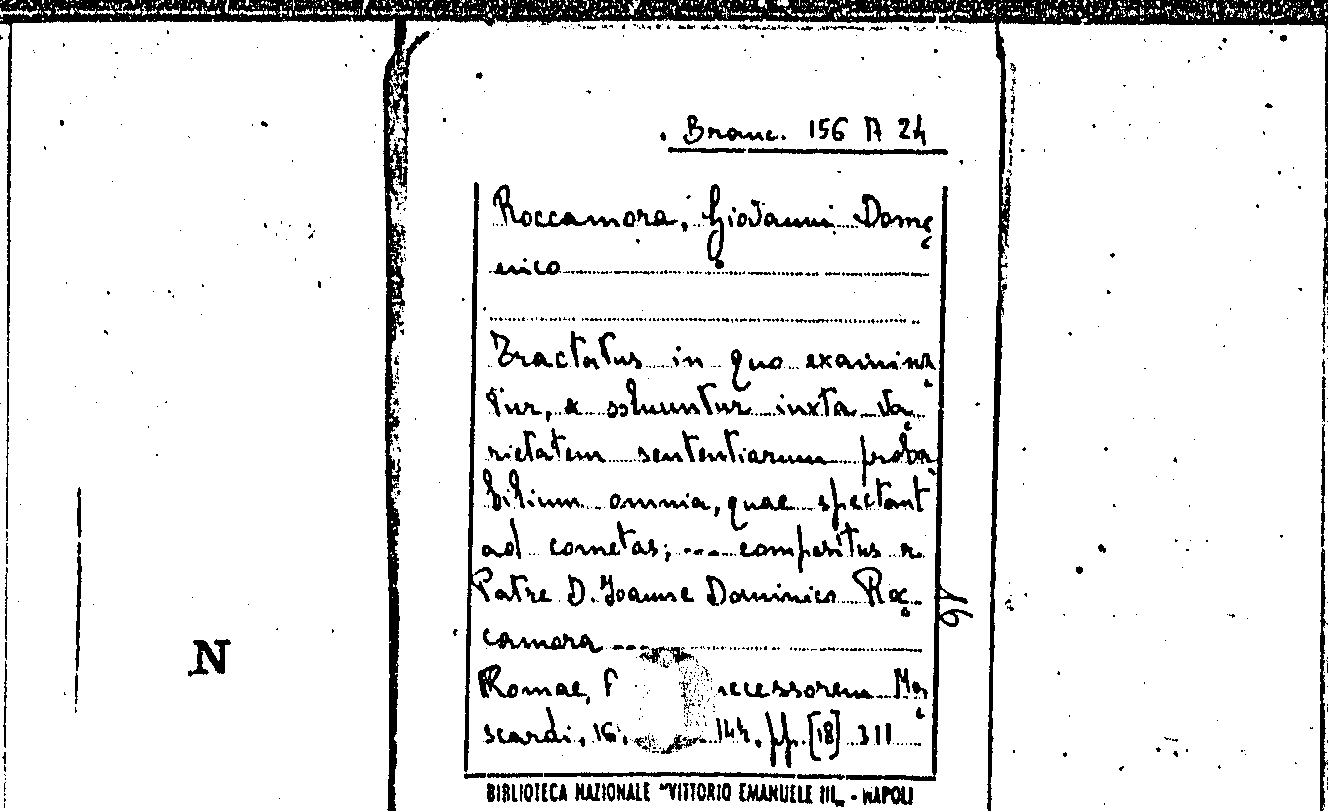 Branc. 156 A 24
Roccamora, Giovanni Dome
nico
Tractatus in quo examina
tur, & soluuntur iuxta va
rietatem sententiarum proba
bilium omnia, quae spectant
ad cometas; --- compositus a
Patre D. Joanne Dominico Roc
camora ---
Romae, ecessorem Ma
scardi, 16 144. pp. [18] 311
N
BIBLIOTECA NAZIONALE "VITTORIO EMANUELE III„ - NAPOLI